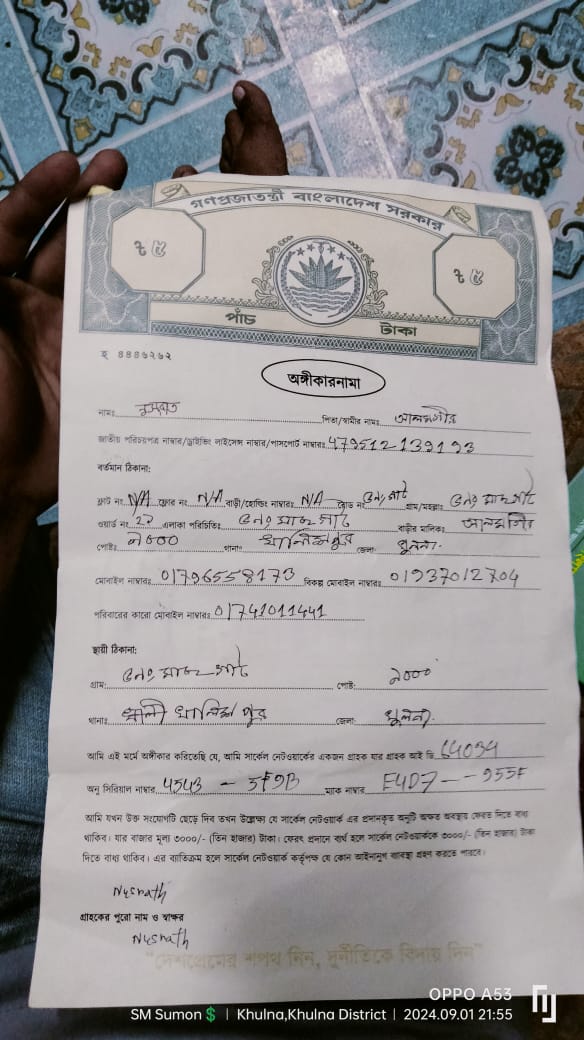 গণপ্রজাতন্ত্রী বাংলাদেশ সরকার
৳ ৫
৳ ৫
পাঁচ টাকা
অঙ্গীকারনামা
নামঃ নুসরাত পিতা/স্বামীর নামঃ আলমগীর
জাতীয় পরিচয়পত্র নাম্বার/ড্রাইভিং লাইসেন্স নাম্বার/পাসপোর্ট নাম্বারঃ
বর্তমান ঠিকানা:
ফ্লাট নং N/A ফ্লোর নং N/A বাড়ী/হোল্ডিং নাম্বারঃ N/A রোড নং গ্রাম/মহল্লা
ওয়ার্ড নং এলাকা পরিচিতিঃ বাড়ীর মালিক:
পোষ্টঃ ৯০০০ থানাঃ খালিশপুর জেলা খুলনা.
মোবাইল নাম্বারঃ 01796558173 বিকল্প মোবাইল নাম্বারঃ 01937012704
পরিবারের কারো মোবাইল নাম্বারঃ 01741011441
স্থায়ী ঠিকানা:
গ্রাম: পোষ্ট: ৯০০০
থানাঃ খালিশপুর জেলা: খুলনা.
আমি এই মর্মে অঙ্গীকার করিতেছি যে, আমি সার্কেল নেটওয়ার্কের একজন গ্রাহক যার গ্রাহক আই ডি 64034
অনু সিরিয়াল নাম্বার 4543 - 5F9B ম্যাক নাম্বার E4D7 -- 955F
আমি যখন উক্ত সংযোগটি ছেড়ে দিব তখন উল্লেখ্য যে সার্কেল নেটওয়ার্ক এর প্রদানকৃত অনুটি অক্ষত অবস্থায় ফেরত দিতে বাধ্য
থাকিব। যার বাজার মূল্য ৩০০০/- (তিন হাজার) টাকা। ফেরৎ প্রদানে ব্যর্থ হলে সার্কেল নেটওয়ার্ককে ৩০০০/- (তিন হাজার) টাকা
দিতে বাধ্য থাকিব। এর ব্যতিক্রম হলে সার্কেল নেটওয়ার্ক কর্তৃপক্ষ যে কোন আইনানুগ ব্যবস্থা গ্রহণ করতে পারবে।
Nusrath
গ্রাহকের পুরো নাম ও স্বাক্ষর
Nusrath
"দেশপ্রেমের শপথ নিন, দুর্নীতিকে বিদায় দিন"
OPPO A53
SM Sumon💲 | Khulna,Khulna District | 2024.09.01 21:55